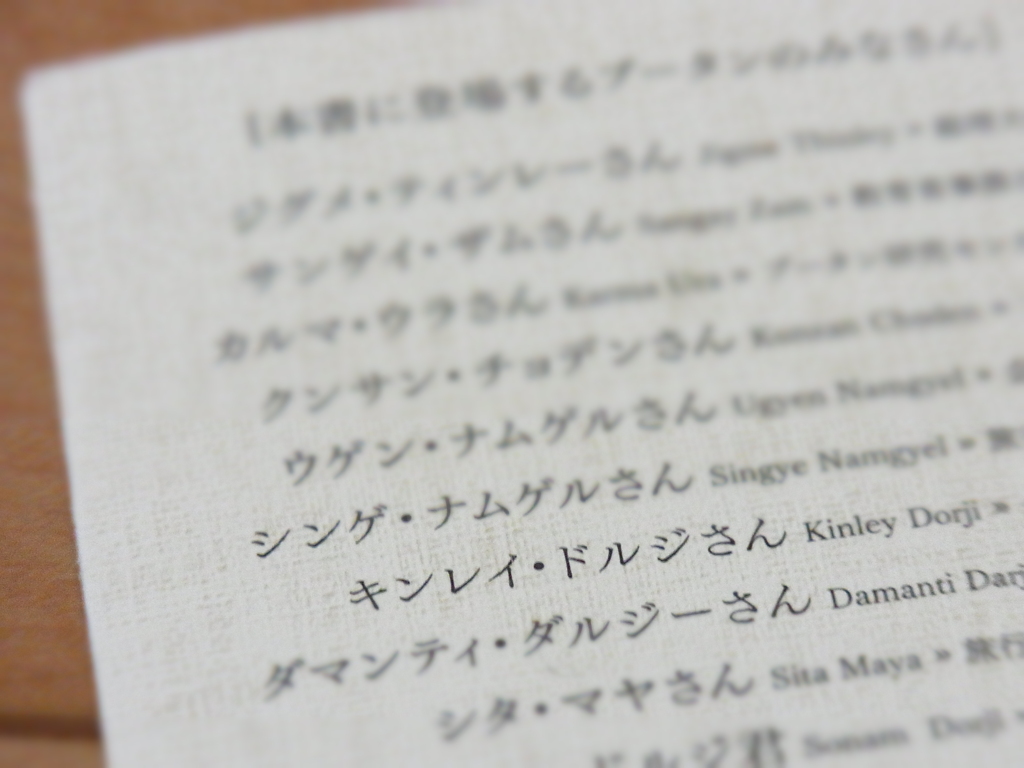 [本書に登場するブータンのみなさん]
ジグメ・ティンレーさん Jigme Thinley »
サンゲイ・ザムさん Sangay Zam »
カルマ・ウラさん Karma Ura » ブータン研究セン
クンサン・チョデンさん Kunzan Choden »
ウゲン・ナムゲルさん Ugyen Namgyel »
シンゲ・ナムゲルさん Singye Namgyel » 旅
キンレイ・ドルジさん Kinley Dorji »
ダマンティ・ダルジーさん Damanti Darj
シタ・マヤさん Sita Maya » 旅行
ドルジ君 Sonam Dorji »